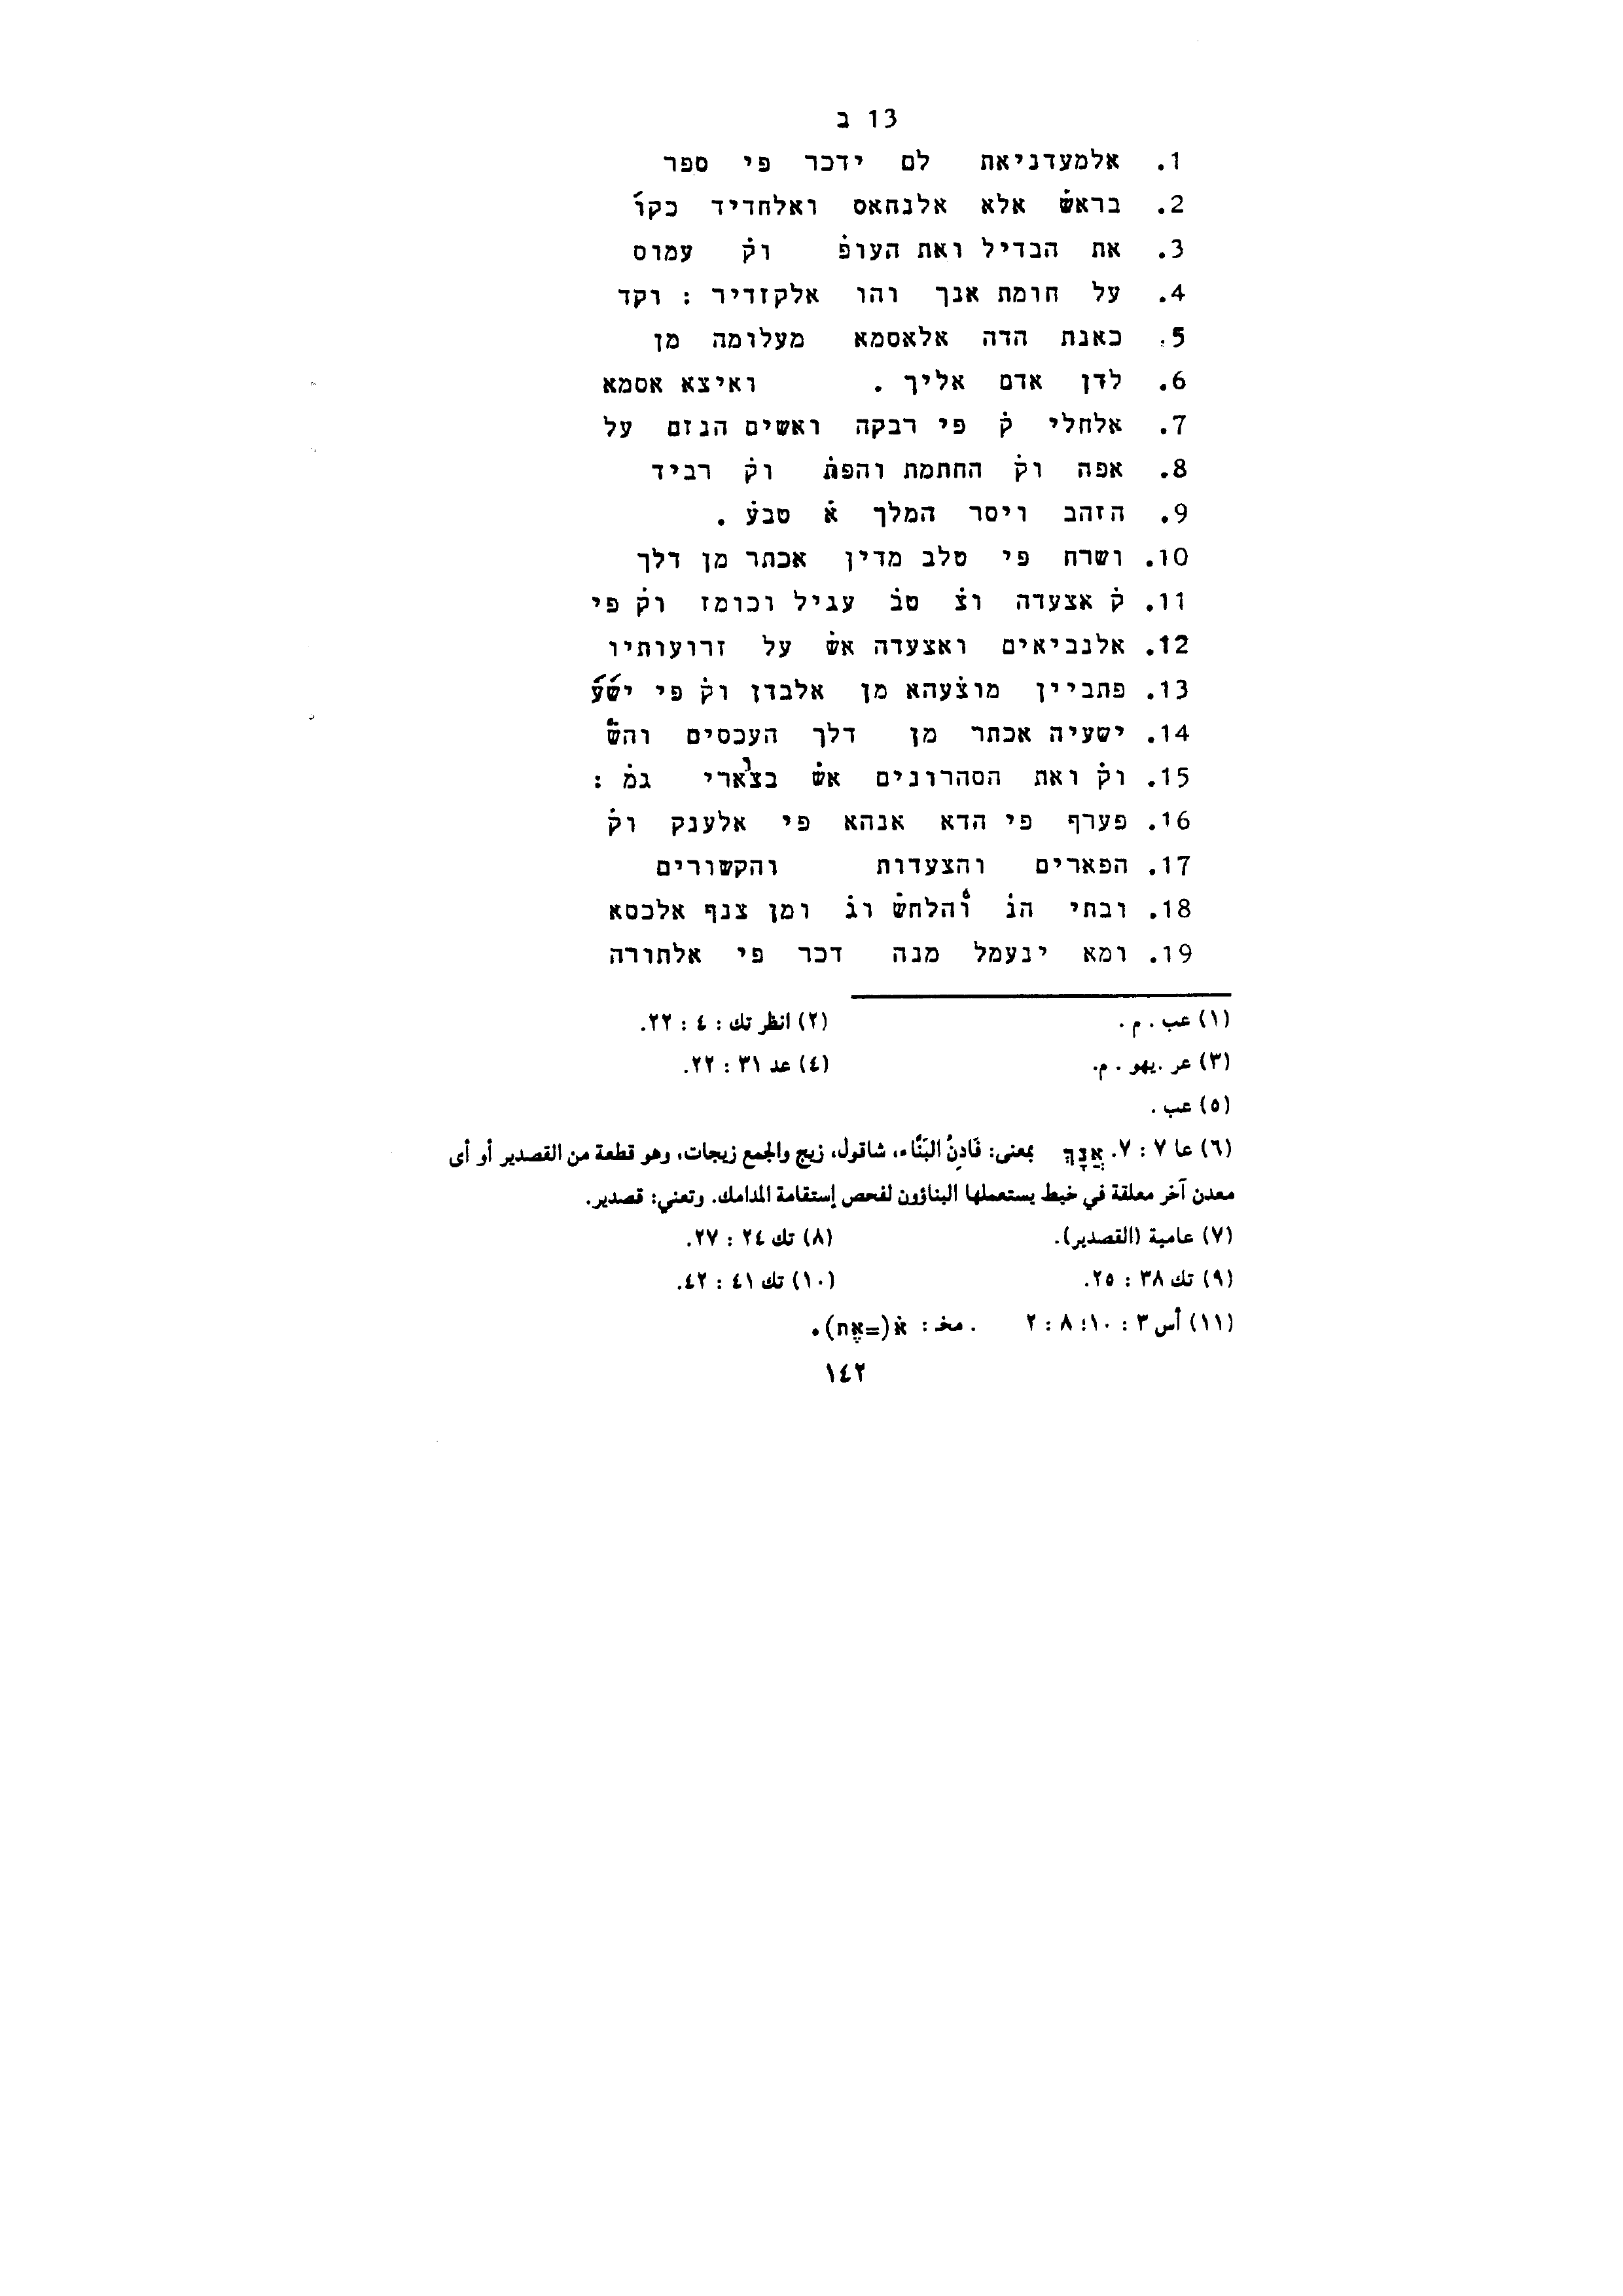 13 ב
1. אלמעדניאת לם ידכר פי ספר
2. בראש̇ אלא אלנחאס ואלחדיד כקו́
3. את הבדיל ואת העופ̇ וק̇ עמוס
4. על חומת אנך והו אלקזדיר : וקד
5. כאנת הדה אלאסמא מעלומה מן
6. לדן אדם אליך . ואיצא אסמא
7. אלחלי ק̇ פי רבקה ואשים הנזם על
8. אפה וק̇ החתמת והפת̇ וק̇ רביד
9. הזהב ויסר המלך א̇ טבע̇ .
10. ושרח פי סלב מדין אכתר מן דלך
11. ק̇ אצעדה וצ̇ טב̇ עגיל וכומז וק̇ פי
12. אלנביאים ואצעדה אש̇ על זרועותיו
13. פתביין מוצ̇עהא מן אלבדן וק̇ פי יש́ע́
14. ישעיה אכתר מן דלך העכסים והש̇
15. וק̇ ואת הסהרונים אש̇ בצוארי גמ̇ :
16. פערף פי הדא אנהא פי אלענק וק̇
17. הפארים והצעדות והקשורים
18. ובתי הנ̇ והלחש̇ וג̇ ומן צנף אלכסא
19. ומא ינעמל מנה דכר פי אלתורה
(١) عب . م .
(٢) انظر تك : ٤ : ٢٢.
(٣) عر .يهو . م.
(٤) عد ٣١ : ٢٢.
(٥) عب .
(٦) عا ٧ : ٧. אֲנָךְ بمعنى: فَادِنُ البَنَّاء، شاقول، زيج والجمع زيجات، وهو قطعة من القصدير أو أى
معدن آخر معلقة في خيط يستعملها البناؤون لفحص إستقامة المدامك. وتعني: قصدير.
(٧) عامية (القصدير).
(٨) تك ٢٤ : ٢٧.
(٩) تك ٣٨ : ٢٥.
(١٠) تك ٤١ : ٤٢.
(١١) أس ٣ : ١٠؛ ٨ : ٢ . مخـ : א̇ (=אֶת).
١٤٢